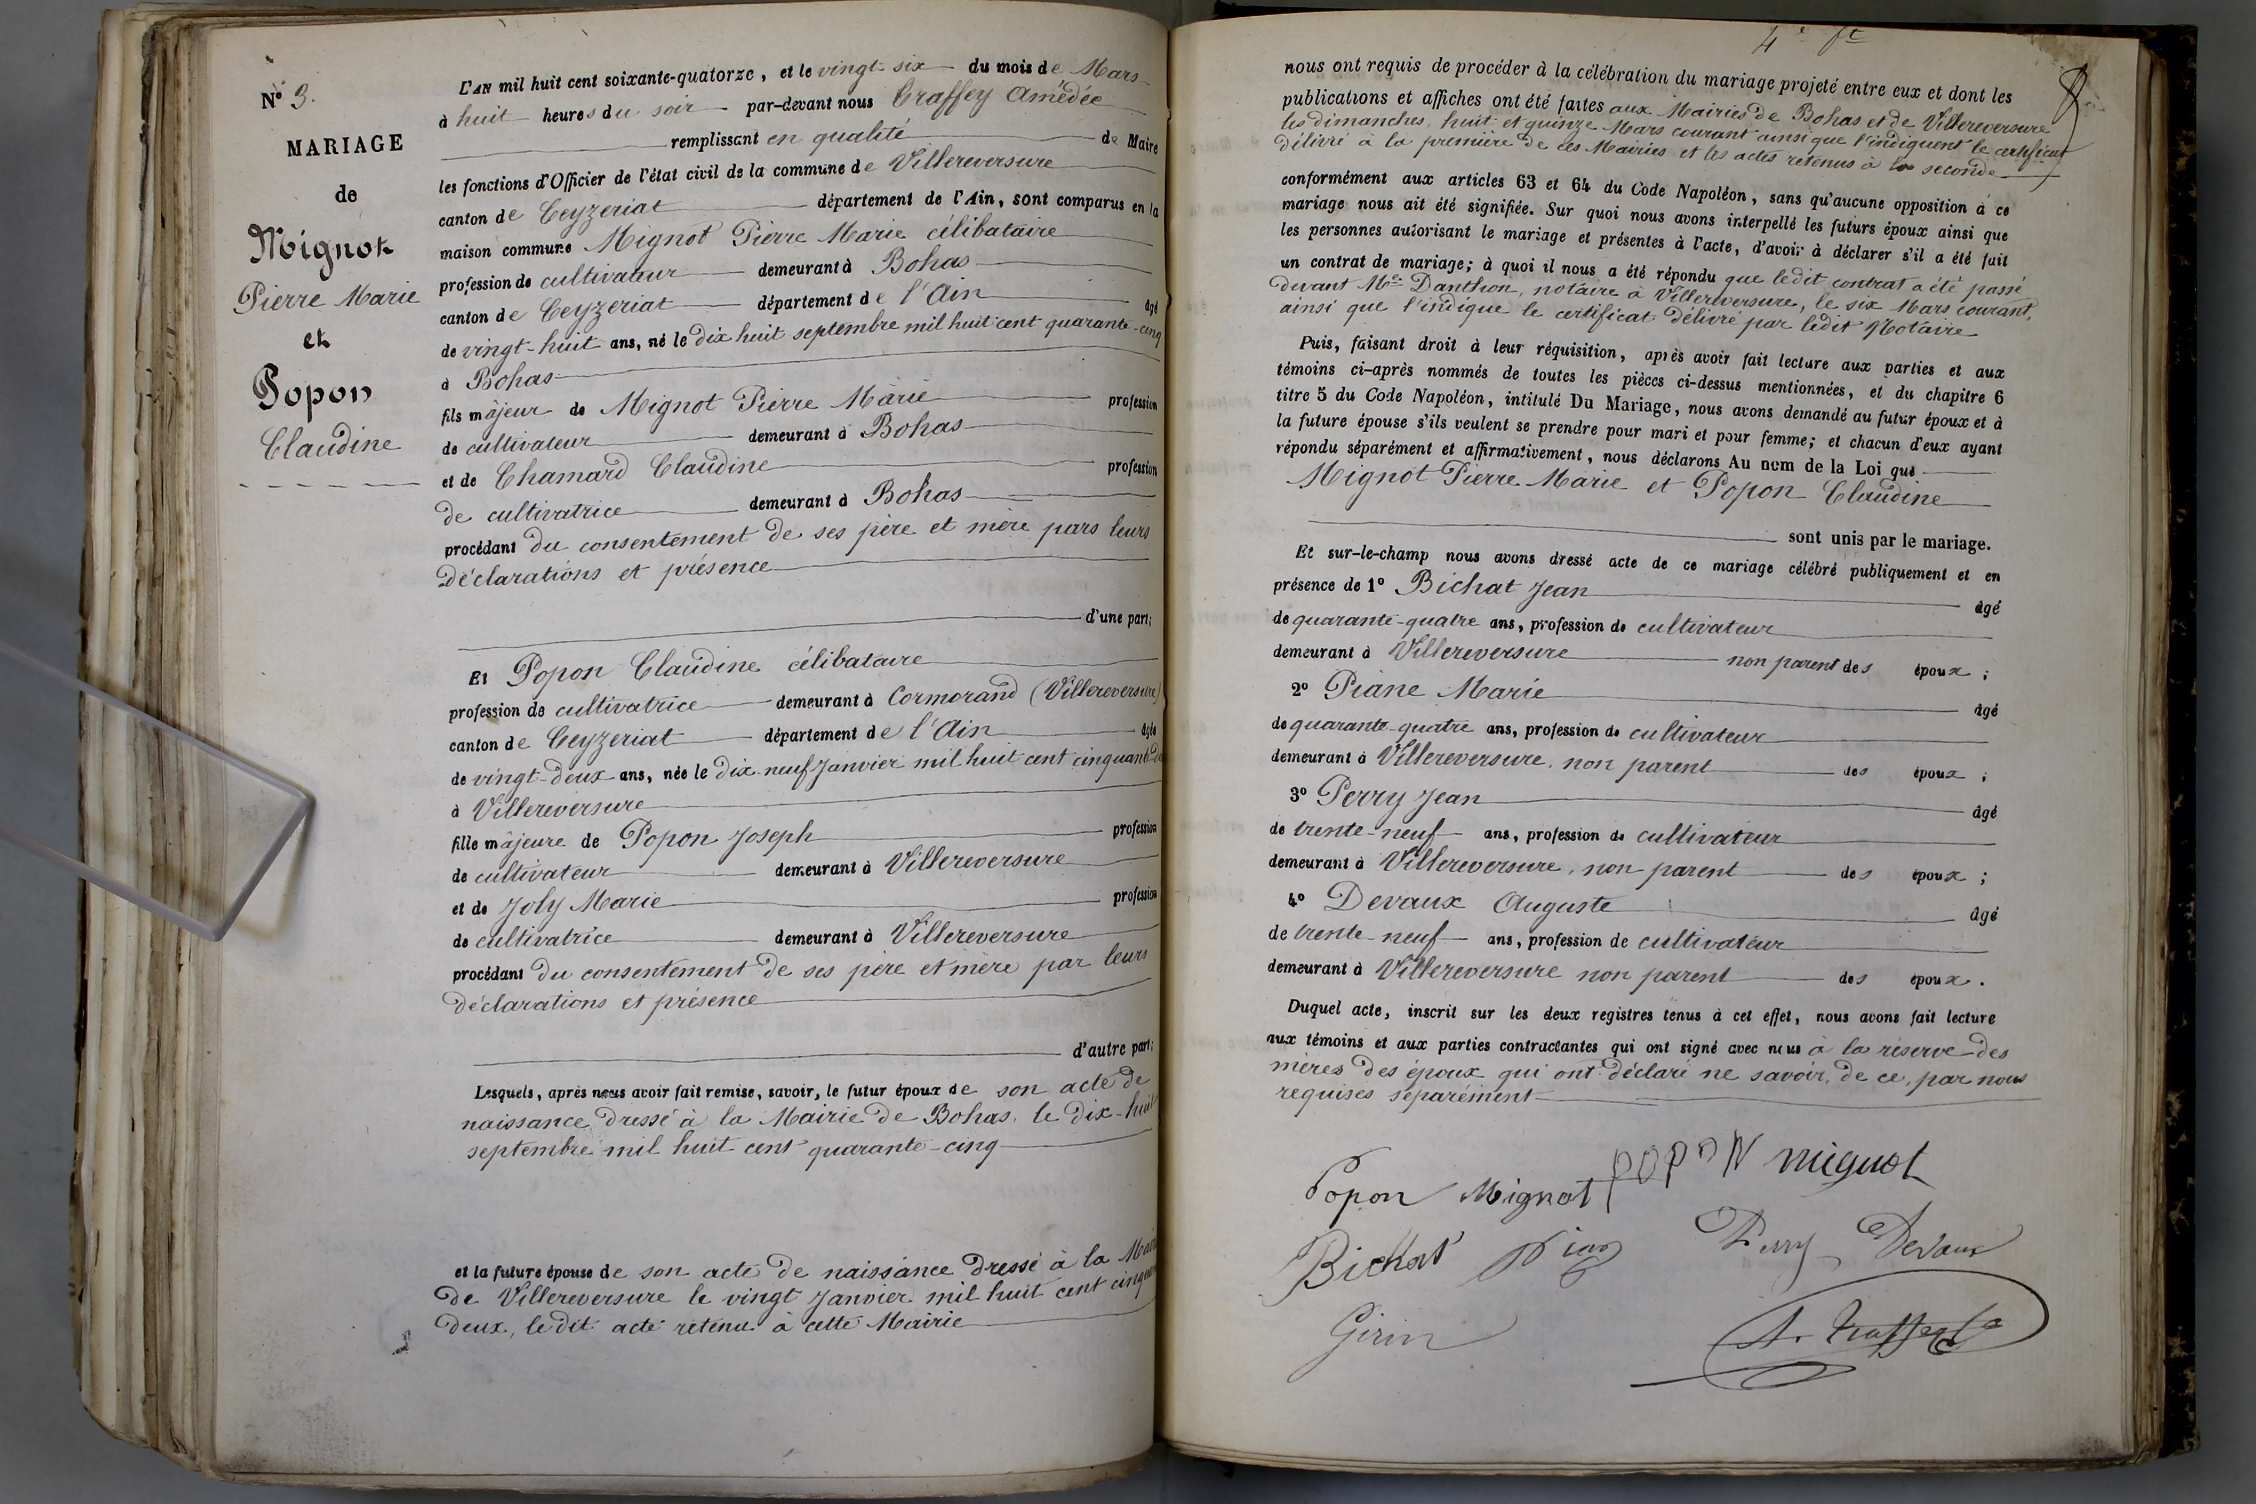 N° 3.
MARIAGE
de
Mignot
Pierre Marie
et
Popon
Claudine
L'AN mil huit cent soixante-quatorze, et le vingt-six du mois de Mars
à huit heures du soir par-devant nous Graffey Amédée
remplissant en qualité de Maire
les fonctions d'Officier de l'état civil de la commune de Villereversure
canton de Ceyzeriat département de l'Ain, sont comparus en la
maison commune Mignot Pierre Marie célibataire
profession de cultivateur demeurant à Bohas
canton de Ceyzeriat département de l'Ain âgé
de vingt-huit ans, né le dix huit septembre mil huit cent quarante-cinq
à Bohas
fils majeur de Mignot Pierre Marie profession
de cultivateur demeurant à Bohas
et de Chamard Claudine profession
de cultivatrice demeurant à Bohas
procédant du consentement de ses père et mère pars leurs
déclarations et présence
d'une part;
Et Popon Claudine célibataire
profession de cultivatrice demeurant à Cormorand (Villereversure)
canton de Ceyzeriat département de l'Ain âgée
de vingt-deux ans, née le dix-neuf Janvier mil huit cent cinquante-de
à Villereversure
fille majeure de Popon Joseph profession
de cultivateur demeurant à Villereversure
et de Joly Marie profession
de cultivatrice demeurant à Villereversure
procédant du consentement de ses père et mère par leurs
déclarations et présence
d'autre part;
Lesquels, après nous avoir fait remise, savoir, le futur époux de son acte de
naissance dressé à la Mairie de Bohas, le dix-huit
septembre mil huit cent quarante-cinq
et la future épouse de son acte de naissance dressé à la Mai
de Villereversure le vingt Janvier mil huit cent cinqua
deux, le dit acte retenu à cette Mairie
4e ft
nous ont requis de procéder à la célébration du mariage projeté entre eux et dont les
publications et affiches ont été faites aux Mairies de Bohas et de Villereversure
les dimanches, huit et quinze Mars courant ainsi que l'indiquent le certificat
délivré à la première de ces Mairies et les actes retenus à la seconde
conformément aux articles 63 et 64 du Code Napoléon, sans qu'aucune opposition à ce
mariage nous ait été signifiée. Sur quoi nous avons interpellé les futurs époux ainsi que
les personnes autorisant le mariage et présentes à l'acte, d'avoir à déclarer s'il a été fait
un contrat de mariage; à quoi il nous a été répondu que ledit contrat a été passé
devant Me Danthon, notaire à Villereversure, le six Mars courant,
ainsi que l'indique le certificat délivré par ledit Notaire
Puis, faisant droit à leur réquisition, après avoir fait lecture aux parties et aux
témoins ci-après nommés de toutes les pièces ci-dessus mentionnées, et du chapitre 6
titre 5 du Code Napoléon, intitulé Du Mariage, nous avons demandé au futur époux et à
la future épouse s'ils veulent se prendre pour mari et pour femme; et chacun d'eux ayant
répondu séparément et affirmativement, nous déclarons Au nom de la Loi que
Mignot Pierre Marie et Popon Claudine
sont unis par le mariage.
Et sur-le-champ nous avons dressé acte de ce mariage célébré publiquement et en
présence de 1° Bichat Jean âgé
de quarante-quatre ans, profession de cultivateur
demeurant à Villereversure non parent des époux ;
2° Piane Marie âgé
de quarante-quatre ans, profession de cultivateur
demeurant à Villereversure, non parent des époux ;
3° Perry Jean âgé
de trente-neuf ans, profession de cultivateur
demeurant à Villereversure, non parent des époux ;
4° Devaux Auguste âgé
de trente-neuf ans, profession de cultivateur
demeurant à Villereversure non parent des époux.
Duquel acte, inscrit sur les deux registres tenus à cet effet, nous avons fait lecture
aux témoins et aux parties contractantes qui ont signé avec nous à la réserve des
mères des époux qui ont déclaré ne savoir, de ce, par nous
requises séparément
Popon Mignot POPON mignot
Bichat Perry Devaux
Girin